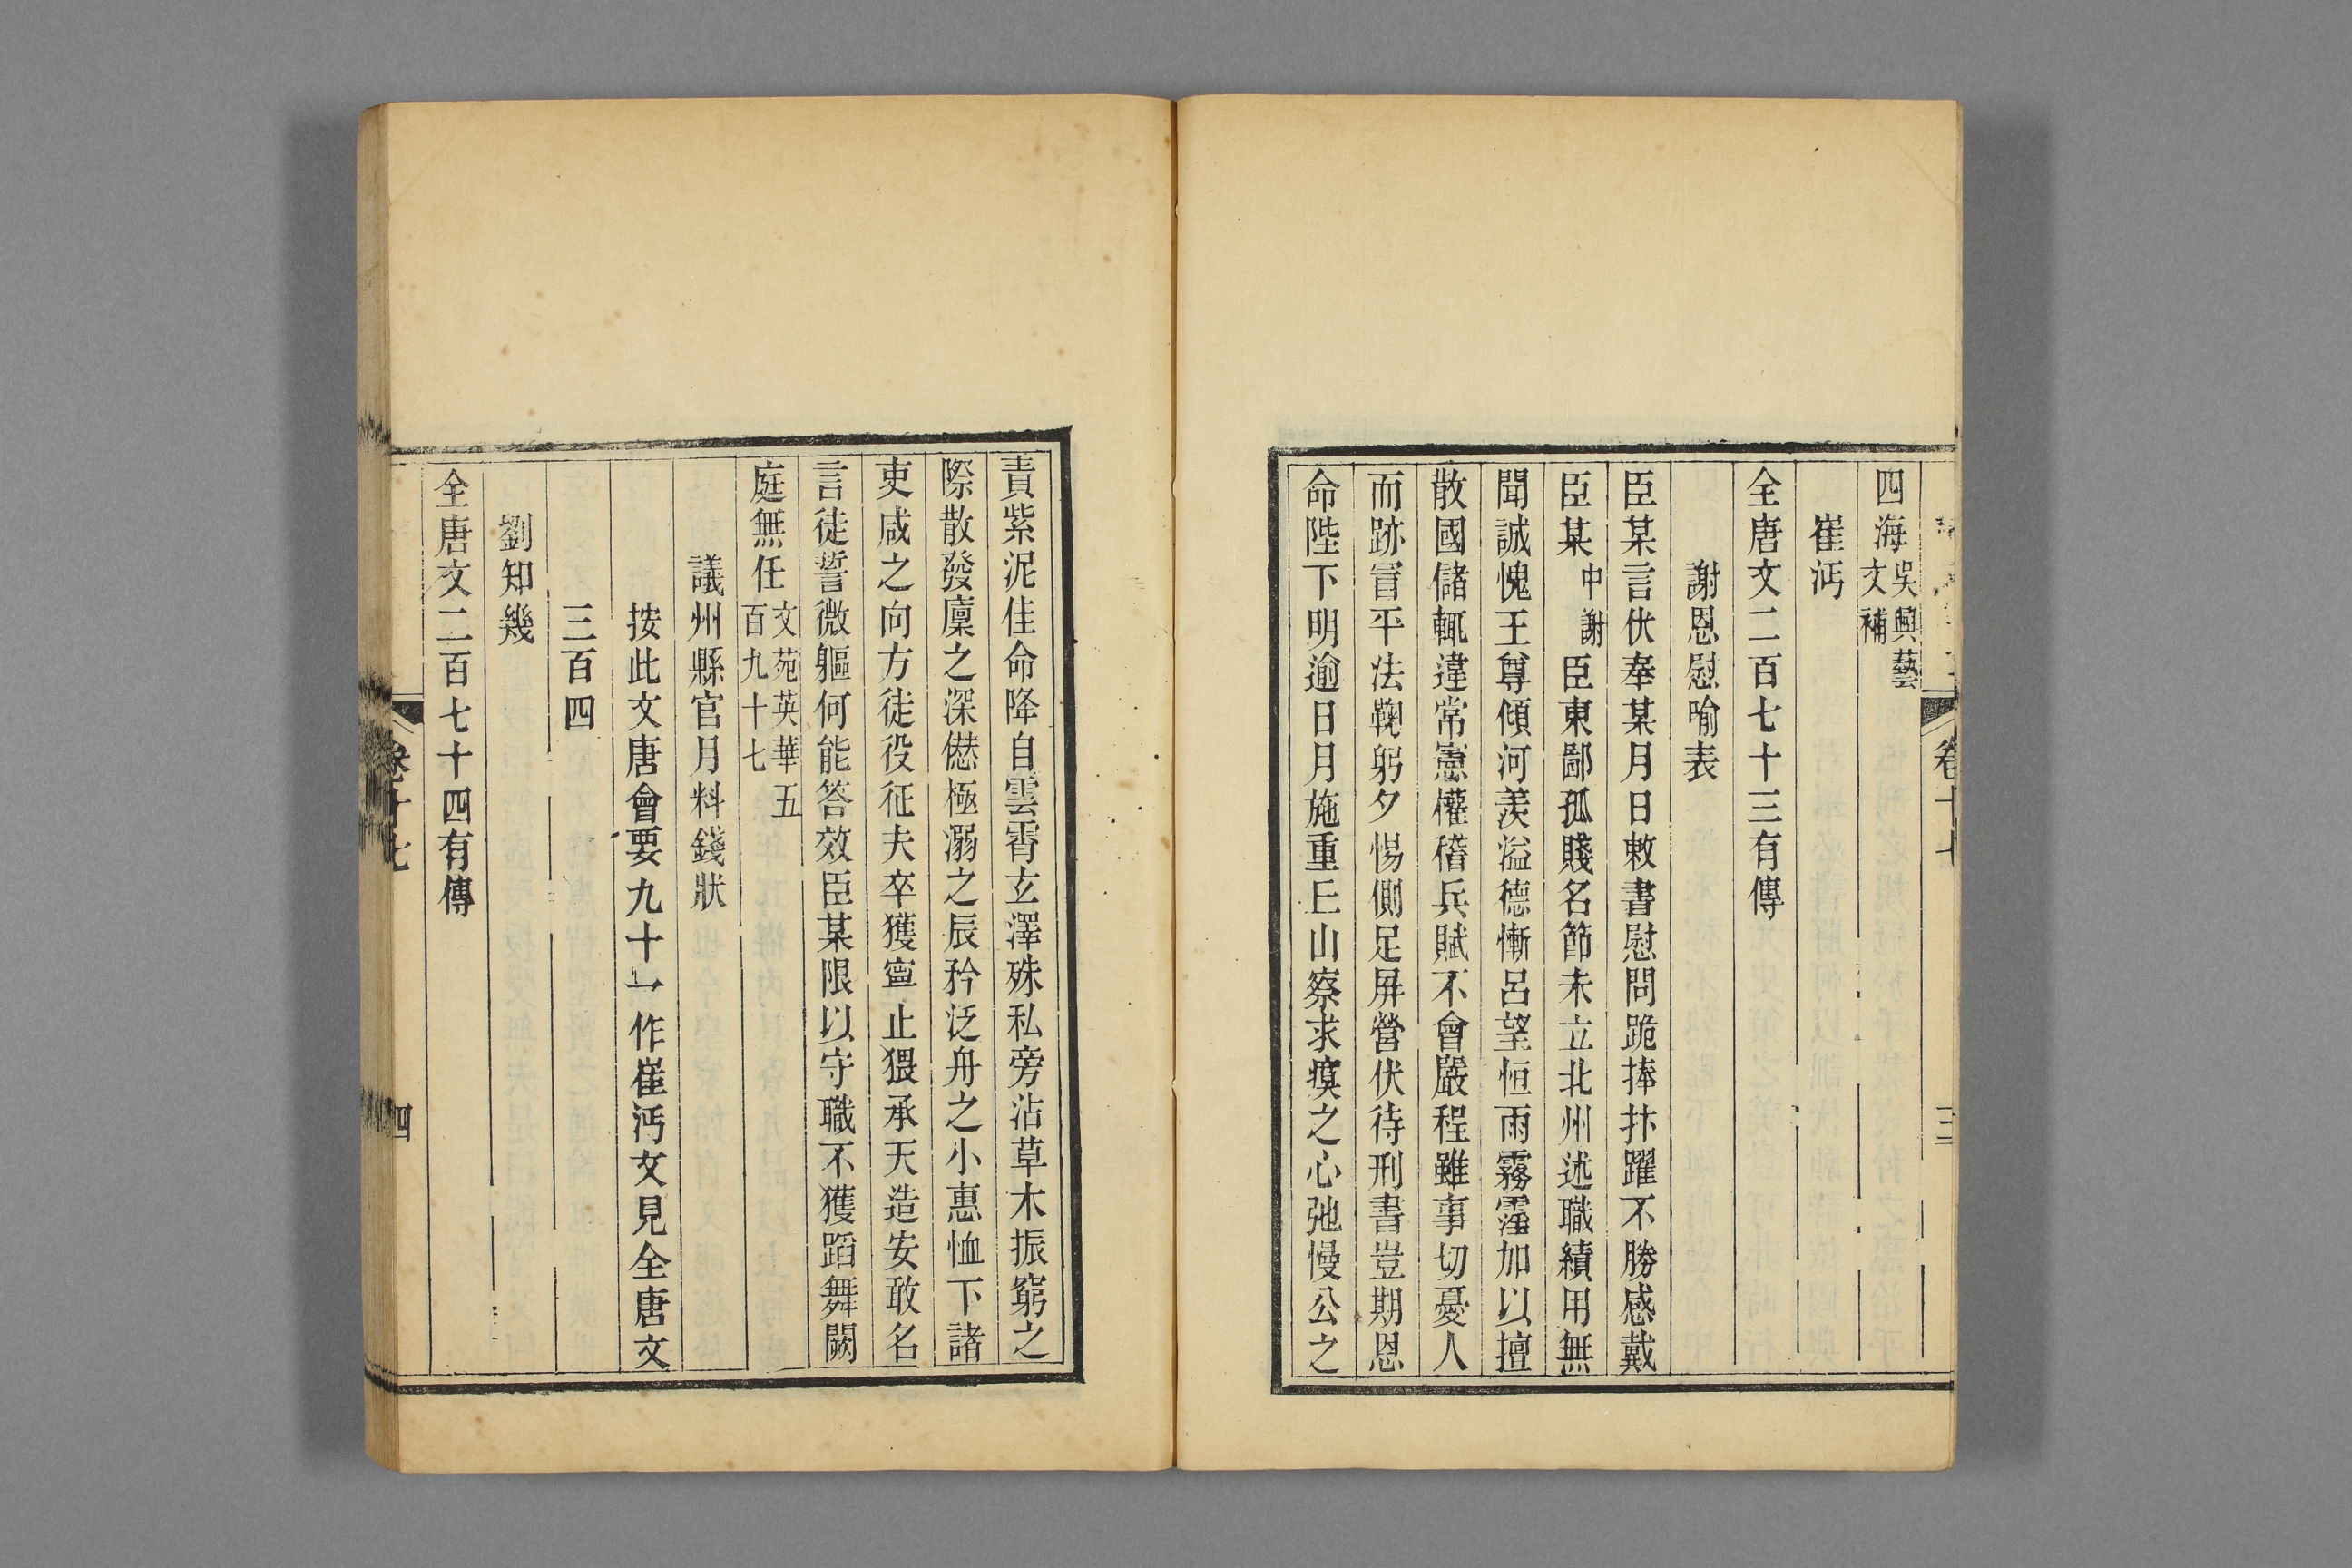 四海吳興藝文補
崔沔
全唐文二百七十三有傳
謝恩慰喻表
臣某言伏奉某月日敕書慰問跪捧抃躍不勝感戴
臣某中謝臣東鄙孤賤名節未立北州述職績用無
聞誠愧王尊傾河羨溢德慚呂望恒雨霧霪加以擅
散國儲輒違常憲權稽兵賦不會嚴程雖事切憂人
而跡冒平法鞠躬夕惕側足屏營伏待刑書豈期恩
命陛下明逾日月施重丘山察求瘼之心弛慢公之
責紫泥佳命降自雲霄玄澤殊私旁沾草木振窮之
際散發廩之深僁極溺之辰矜泛舟之小惠恤下諸
吏咸之向方徒役征夫卒獲寧止猥承天造安敢名
言徒誓微軀何能答效臣某限以守職不獲蹈舞闕
庭無任文苑英華五百九十七
議州縣官月料錢狀
按此文唐會要九十一作崔沔文見全唐文
三百四
劉知幾
全唐文二百七十四有傳
卷十七
四